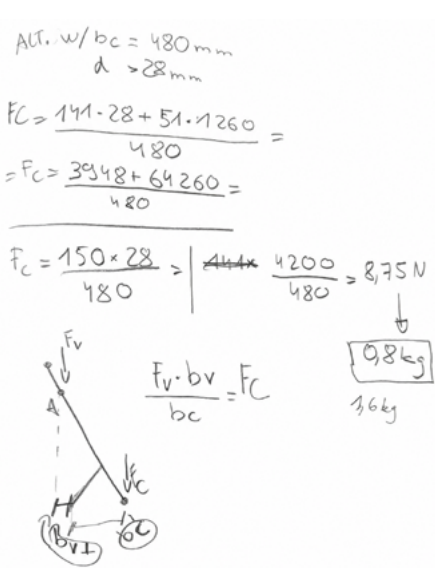 ALT. w/ bc = 480 mm
d > 28 mm
FC = 141 · 28 + 51 · 1260 =
480
= Fc = 3948 + 64260 =
480
Fc = 150 × 28 = | 4200 = 8,75 N
480 480
0,8 kg
1,6 kg
Fv
Fv · bv = FC
bc
A
Fc
Bv1
bc